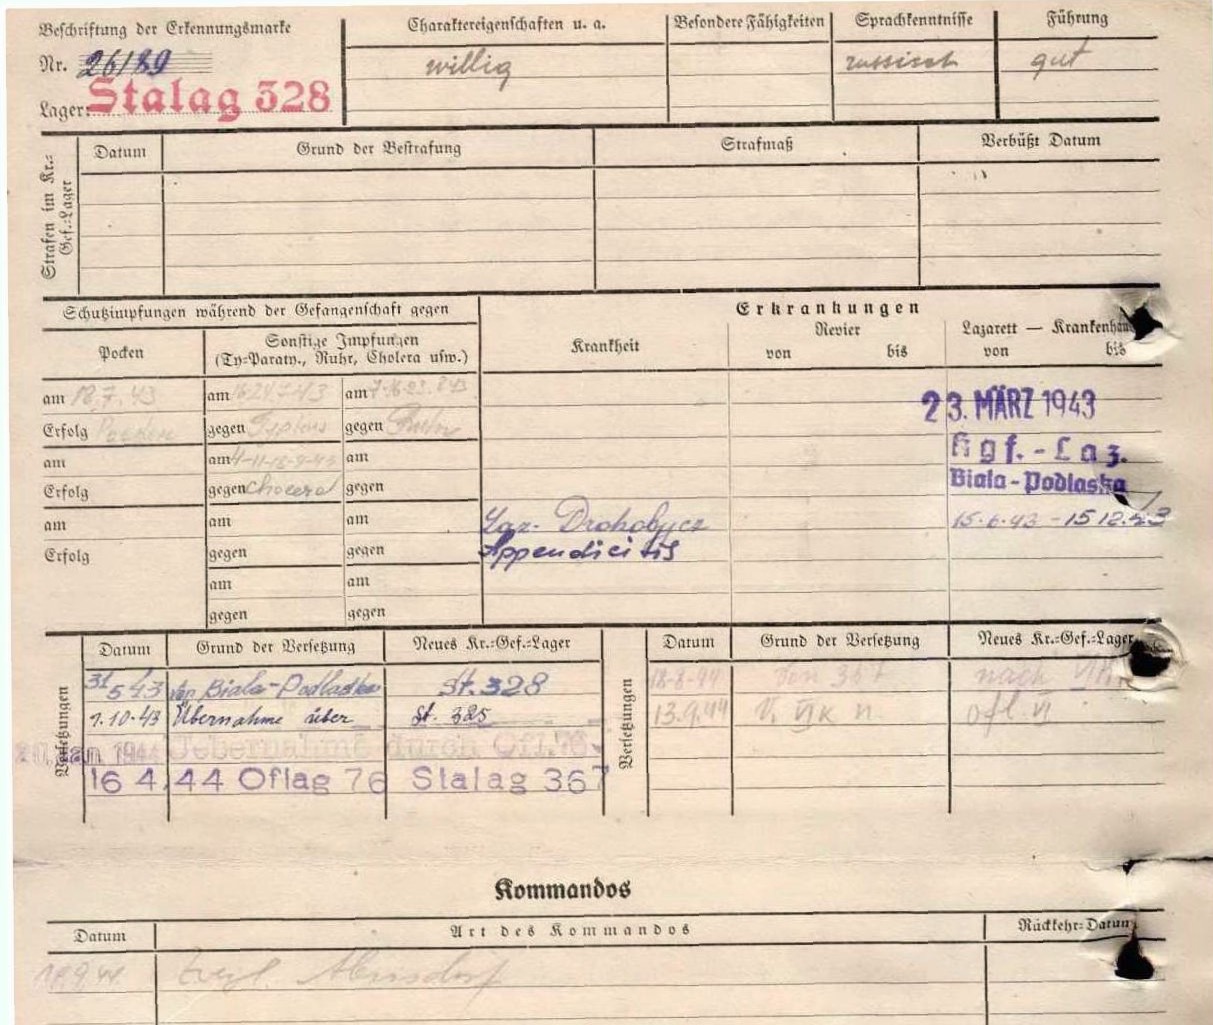 Beschriftung der Erkennungsmarke
Nr. 26189
Lager: Stalag 328
Charaktereigenschaften u. a.
willig
Besondere Fähigkeiten
Sprachkenntnisse
russisch
Führung
gut
Strafen im Kr.-
Gef.-Lager
Datum
Grund der Bestrafung
Strafmaß
Verbüßt Datum
Schutzimpfungen während der Gefangenschaft gegen
Pocken
Sonstige Impfungen
(Ty-Paraty., Ruhr, Cholera usw.)
am 18.7.43 am am
Erfolg Pocken gegen Typhus gegen Ruhr
am am 4-11-18-9-43 am
Erfolg gegen Cholera gegen
am am am
Erfolg gegen gegen
am am
gegen gegen
Erkrankungen
Krankheit
Revier
von bis
Lazarett — Krankenhaus
von bis
23. MÄRZ 1943
Kgf.-Laz.
Biala-Podlaska
Laz- Drohobycz 15.6.43 - 15 12.43
Appendicitis
Versetzungen
Datum Grund der Versetzung Neues Kr.-Gef.-Lager
31 5 43 von Biala-Podlaska St. 328
7.10.43 Übernahme über St. 325
Jan 1944 Uebernahme durch Ofl. 76
16 4. 44 Oflag 76 Stalag 367
Versetzungen
Datum Grund der Versetzung Neues Kr.-Gef.-Lager
18-8-44 von 367 nach VI K
13.9.44 v. VI K n. Ofl. VI
Kommandos
Datum Art des Kommandos Rückkehr-Datum